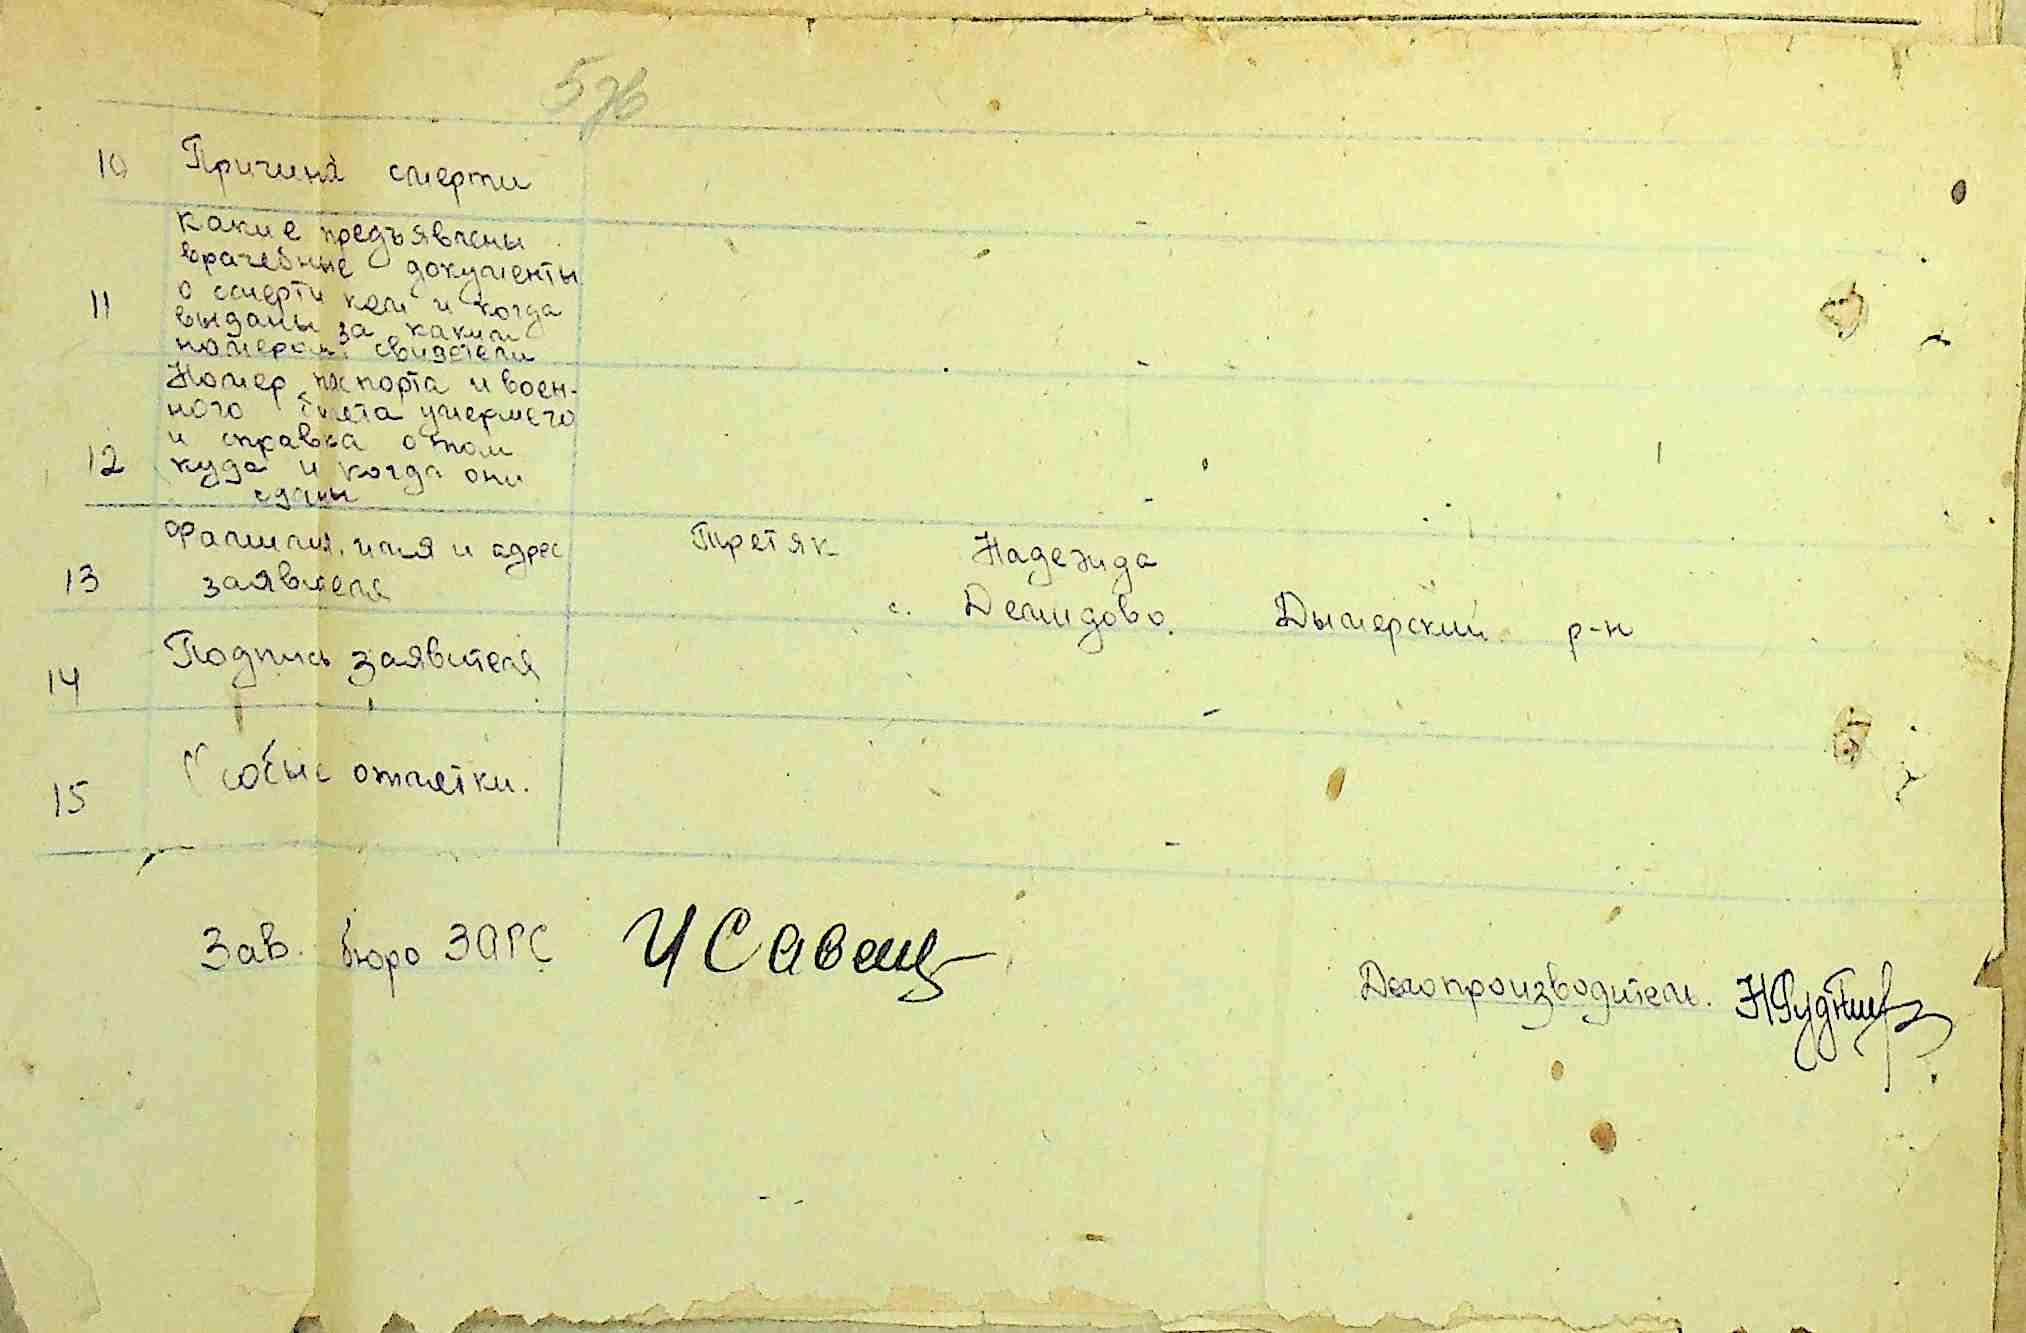 10 Причина смерти
какие предъявлены
врачебные документы
о смерти кем и когда
11 выданы за каким
номером. свидетели
Номер паспорта и воен-
ного билета умершего
и справка о том
12 куда и когда они
сданы
Фамилия, имя и адрес Третяк Надежда
13 заявителя с. Демидово. Дымерский р-н
14 Подпись заявителя
15 Особые отметки.
Зав. бюро ЗАГС И Савец
Делопроизводитель.